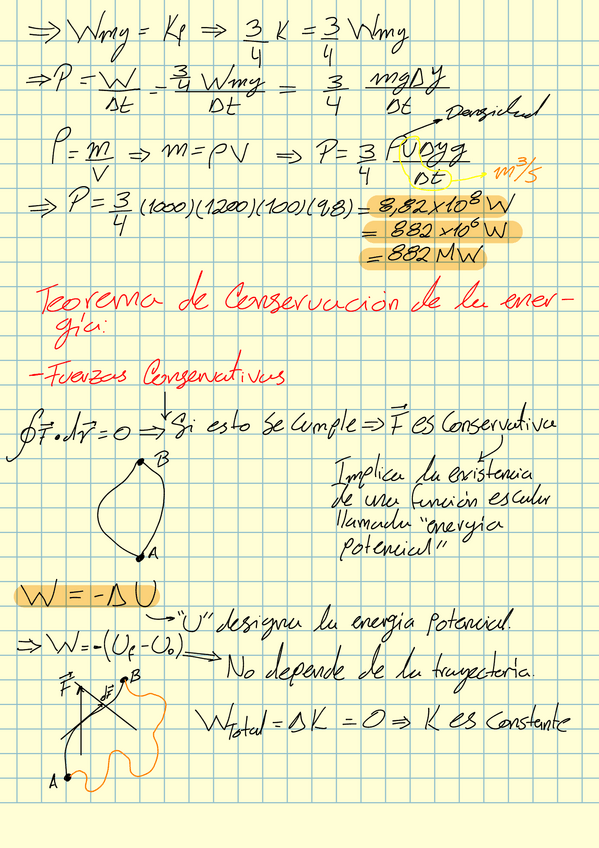 ⇒ Wmg = Kf ⇒ 3/4 K = 3/4 Wmg
⇒ P = W/Δt = 3/4 Wmg/Δt = 3/4 mgΔy/Δt
Densidad
ρ = m/V ⇒ m = ρV ⇒ P = 3/4 ρVΔyg/Δt
m³/s
⇒ P = 3/4 (1000)(1200)(100)(9,8) = 8,82×10⁸ W
= 882×10⁶ W
= 882 MW
Teorema de Conservación de la ener-
gía:
-Fuerzas Conservativas
∮F⃗•dr⃗ = 0 ⇒ Si esto se cumple ⇒ F⃗ es Conservativa
B
Implica la existencia
de una función escalar
llamada "energía
potencial"
A
W = -ΔU
"U" designa la energía potencial.
⇒ W = -(Uf - U₀)
No depende de la trayectoria.
F⃗ dr⃗ B
WTotal = ΔK = 0 ⇒ K es Constante
A